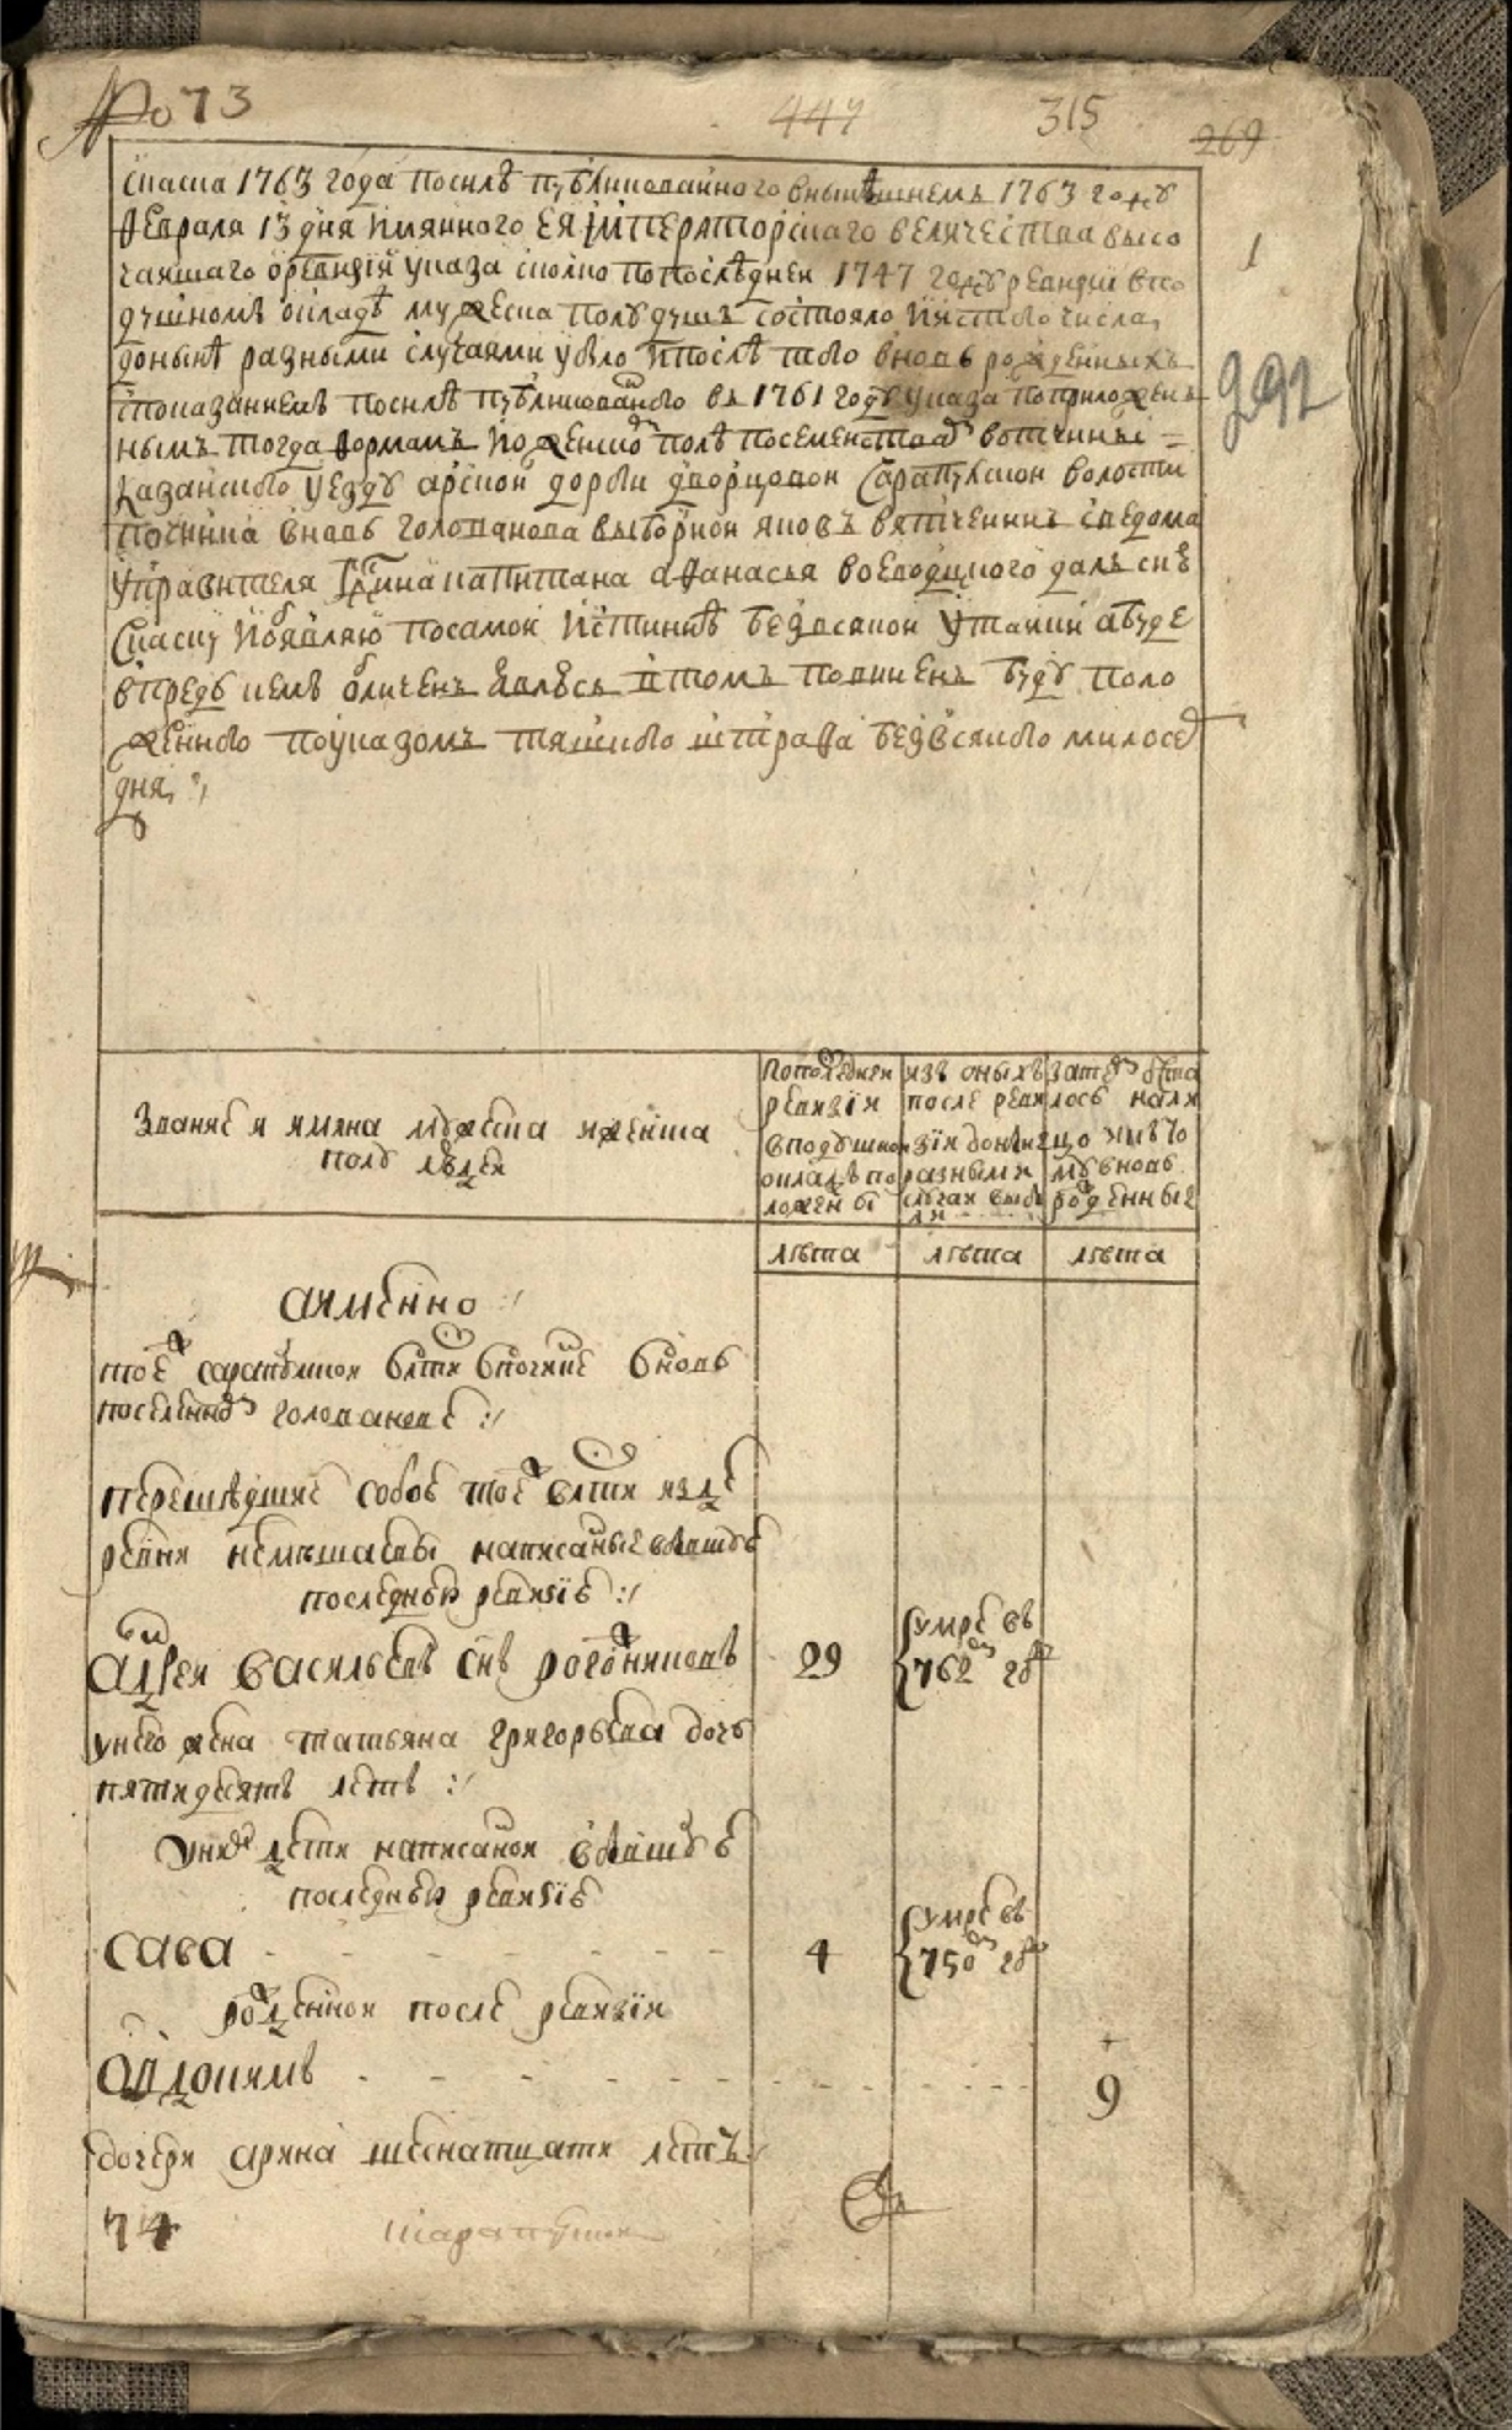 № 73
447
315
269
Скаска 1763 года посилѣ публикованного внынѣшнемъ 1763 году
февраля 13 дня имянного ЕЯ Императорскаго величества высо
чаишаго оревизіи указа сколко попослѣднеи 1747 году ревизии впо
душномъ окладѣ мужеска полу душъ состояло иистого числа,
донынѣ разными случаями убыло ипослѣ того вновь рожденныхъ
споказаниемъ посилѣ публикованого въ 1761 году указа поприложен
нымъ тогда формамъ иоженско полѣ посеменством вотчины
казанского уезду арской дороги дворцовои Сарапулской волости
починка вновь голованова выборнои яковъ вятченинъ сведома
управителя капитана афанасья воеводцкого далъ сиѣ
скаску иобявляю посамои истиннѣ безвсякои утаики абуде
впредь кемъ обличенъ явлюсь втомъ повиненъ буду поло
женного поуказомъ тяшкого штрафа безвсякого милосер
дия,
1
292
Звание и имяна мужеска иженска
полу людеи
Попоследнеи
ревизіи
вподушном
окладѣ по
ложены
изъ оныхъ
после реви
зіи донынѣ
разными
случаи выбы
ли
затем оста
лось налицо
ицо иикъ то
му вновь
рожденные
лѣта
лѣта
лѣта
аимѣнно :/
тоѣ сарапулской влсти впочинке вновь
поселенном головановѣ :/
перешѣдшие собою тоѣ влсти изде
ревни написаные вбывшую
последнюю ревизію :/
Андреи васильевъ снъ рогожниковъ
29
умре въ
762м году
унего жена татьяна григорьева дочь
пятидесятъ летъ :/
уних дети написанои вбывшую
последнюю ревизію
сава
4
умре въ
750м году
рожденнои после ревизіи
Овдокимъ
9
дочери арина шеснатцати летъ
74
сарапулской